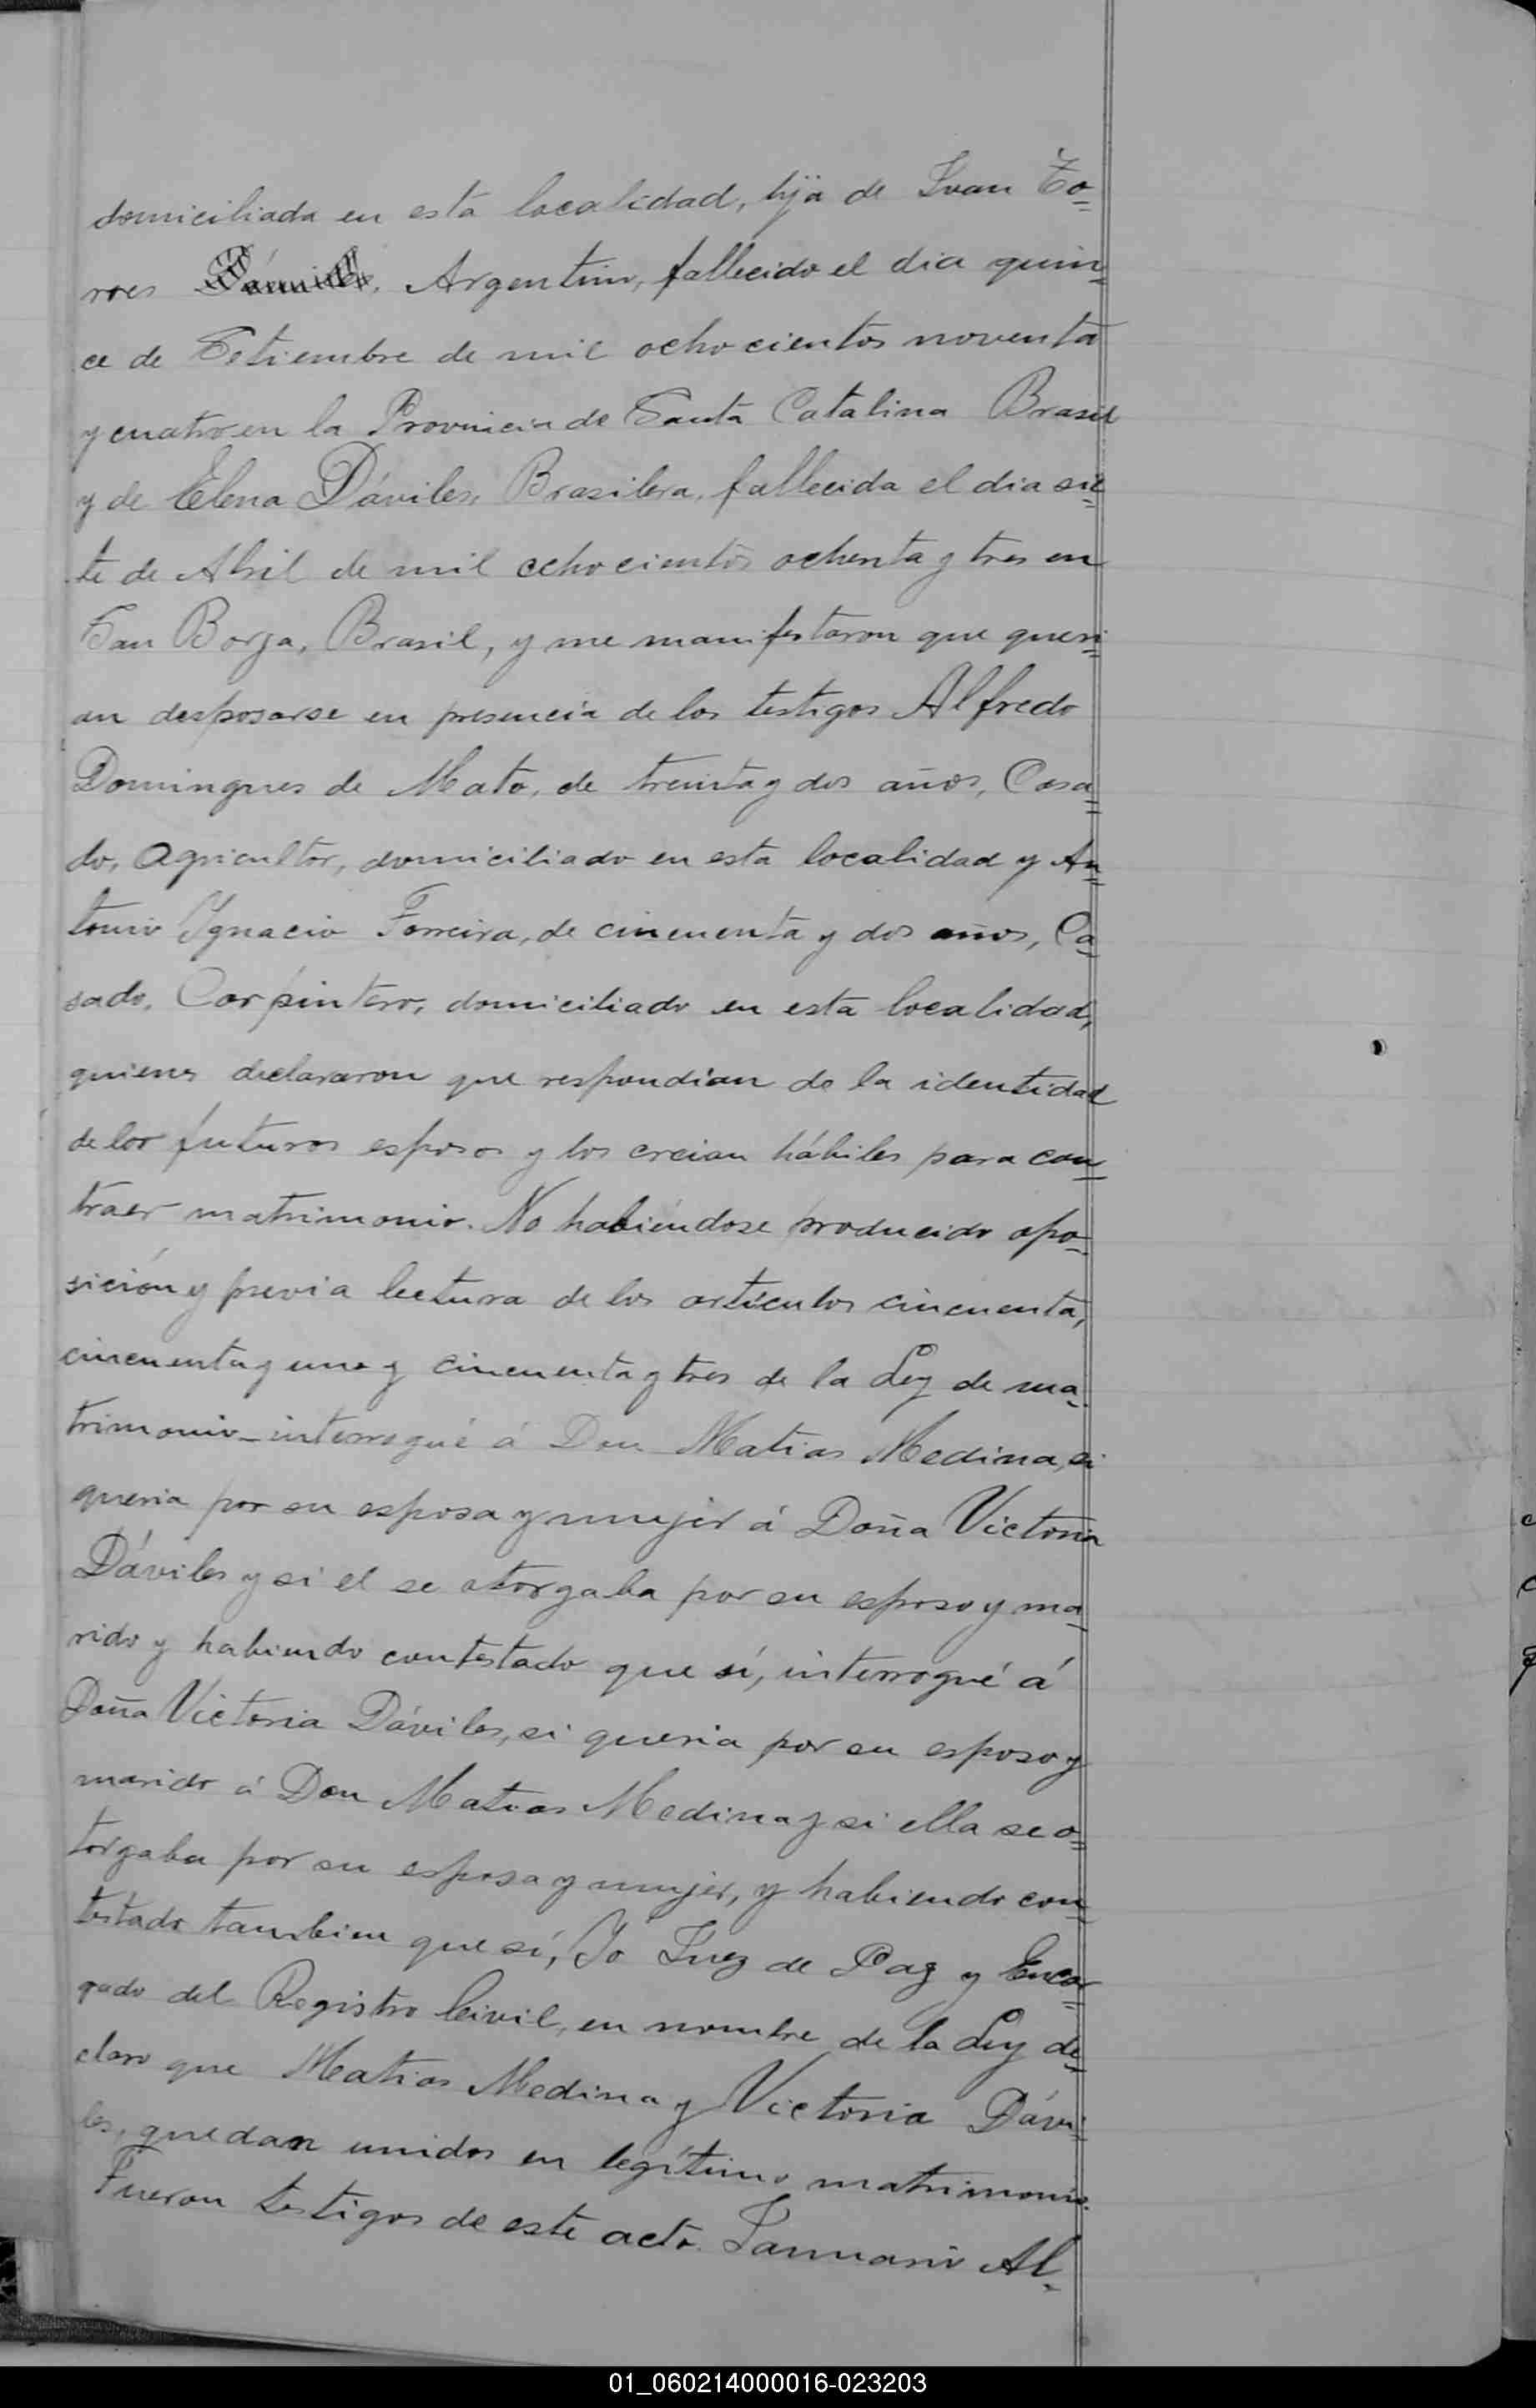 domiciliada en esta localidad, hija de Juan To=
rres Dáviles, Argentino, fallecido el dia quin=
ce de Setiembre de mil ochocientos noventa
y cuatro en la Provincia de Santa Catalina Brasil
y de Elena Dáviles, Brasilera, fallecida el dia sie=
te de Abril de mil ochocientos ochenta y tres en
San Borja, Brasil, y me manifestaron que queri=
an desposarse en presencia de los testigos Alfredo
Domingues de Mato, de treinta y dos años, Casa=
do, Agricultor, domiciliado en esta localidad y An=
tonio Ygnacio Ferreira, de cincuenta y dos años, Ca=
sado, Carpintero, domiciliado en esta localidad,
quienes declararon que respondian de la identidad
de los futuros esposos y los creian hábiles para con=
traer matrimonio. No habiéndose producido opo=
sición y previa lectura de los artículos cincuenta,
cincuenta y uno y cincuenta y tres de la Ley de ma=
trimonio interrogué á Don Matias Medina, si
queria por su esposa y mujer á Doña Victoria
Dáviles y si el se otorgaba por su esposo y ma=
rido y habiendo contestado que sí, interrogué á
Doña Victoria Dáviles, si queria por su esposo y
marido á Don Matias Medina y si ella se o=
torgaba por su esposa y mujer, y habiendo con=
testado tambien que sí, Yo Juez de Paz y Encar=
gado del Registro Civil, en nombre de la Ley de=
claro que Matias Medina y Victoria Dávi=
les, quedan unidos en legítimo matrimonio.
Fueron testigos de este acto. Januario Al=
01_060214000016-023203